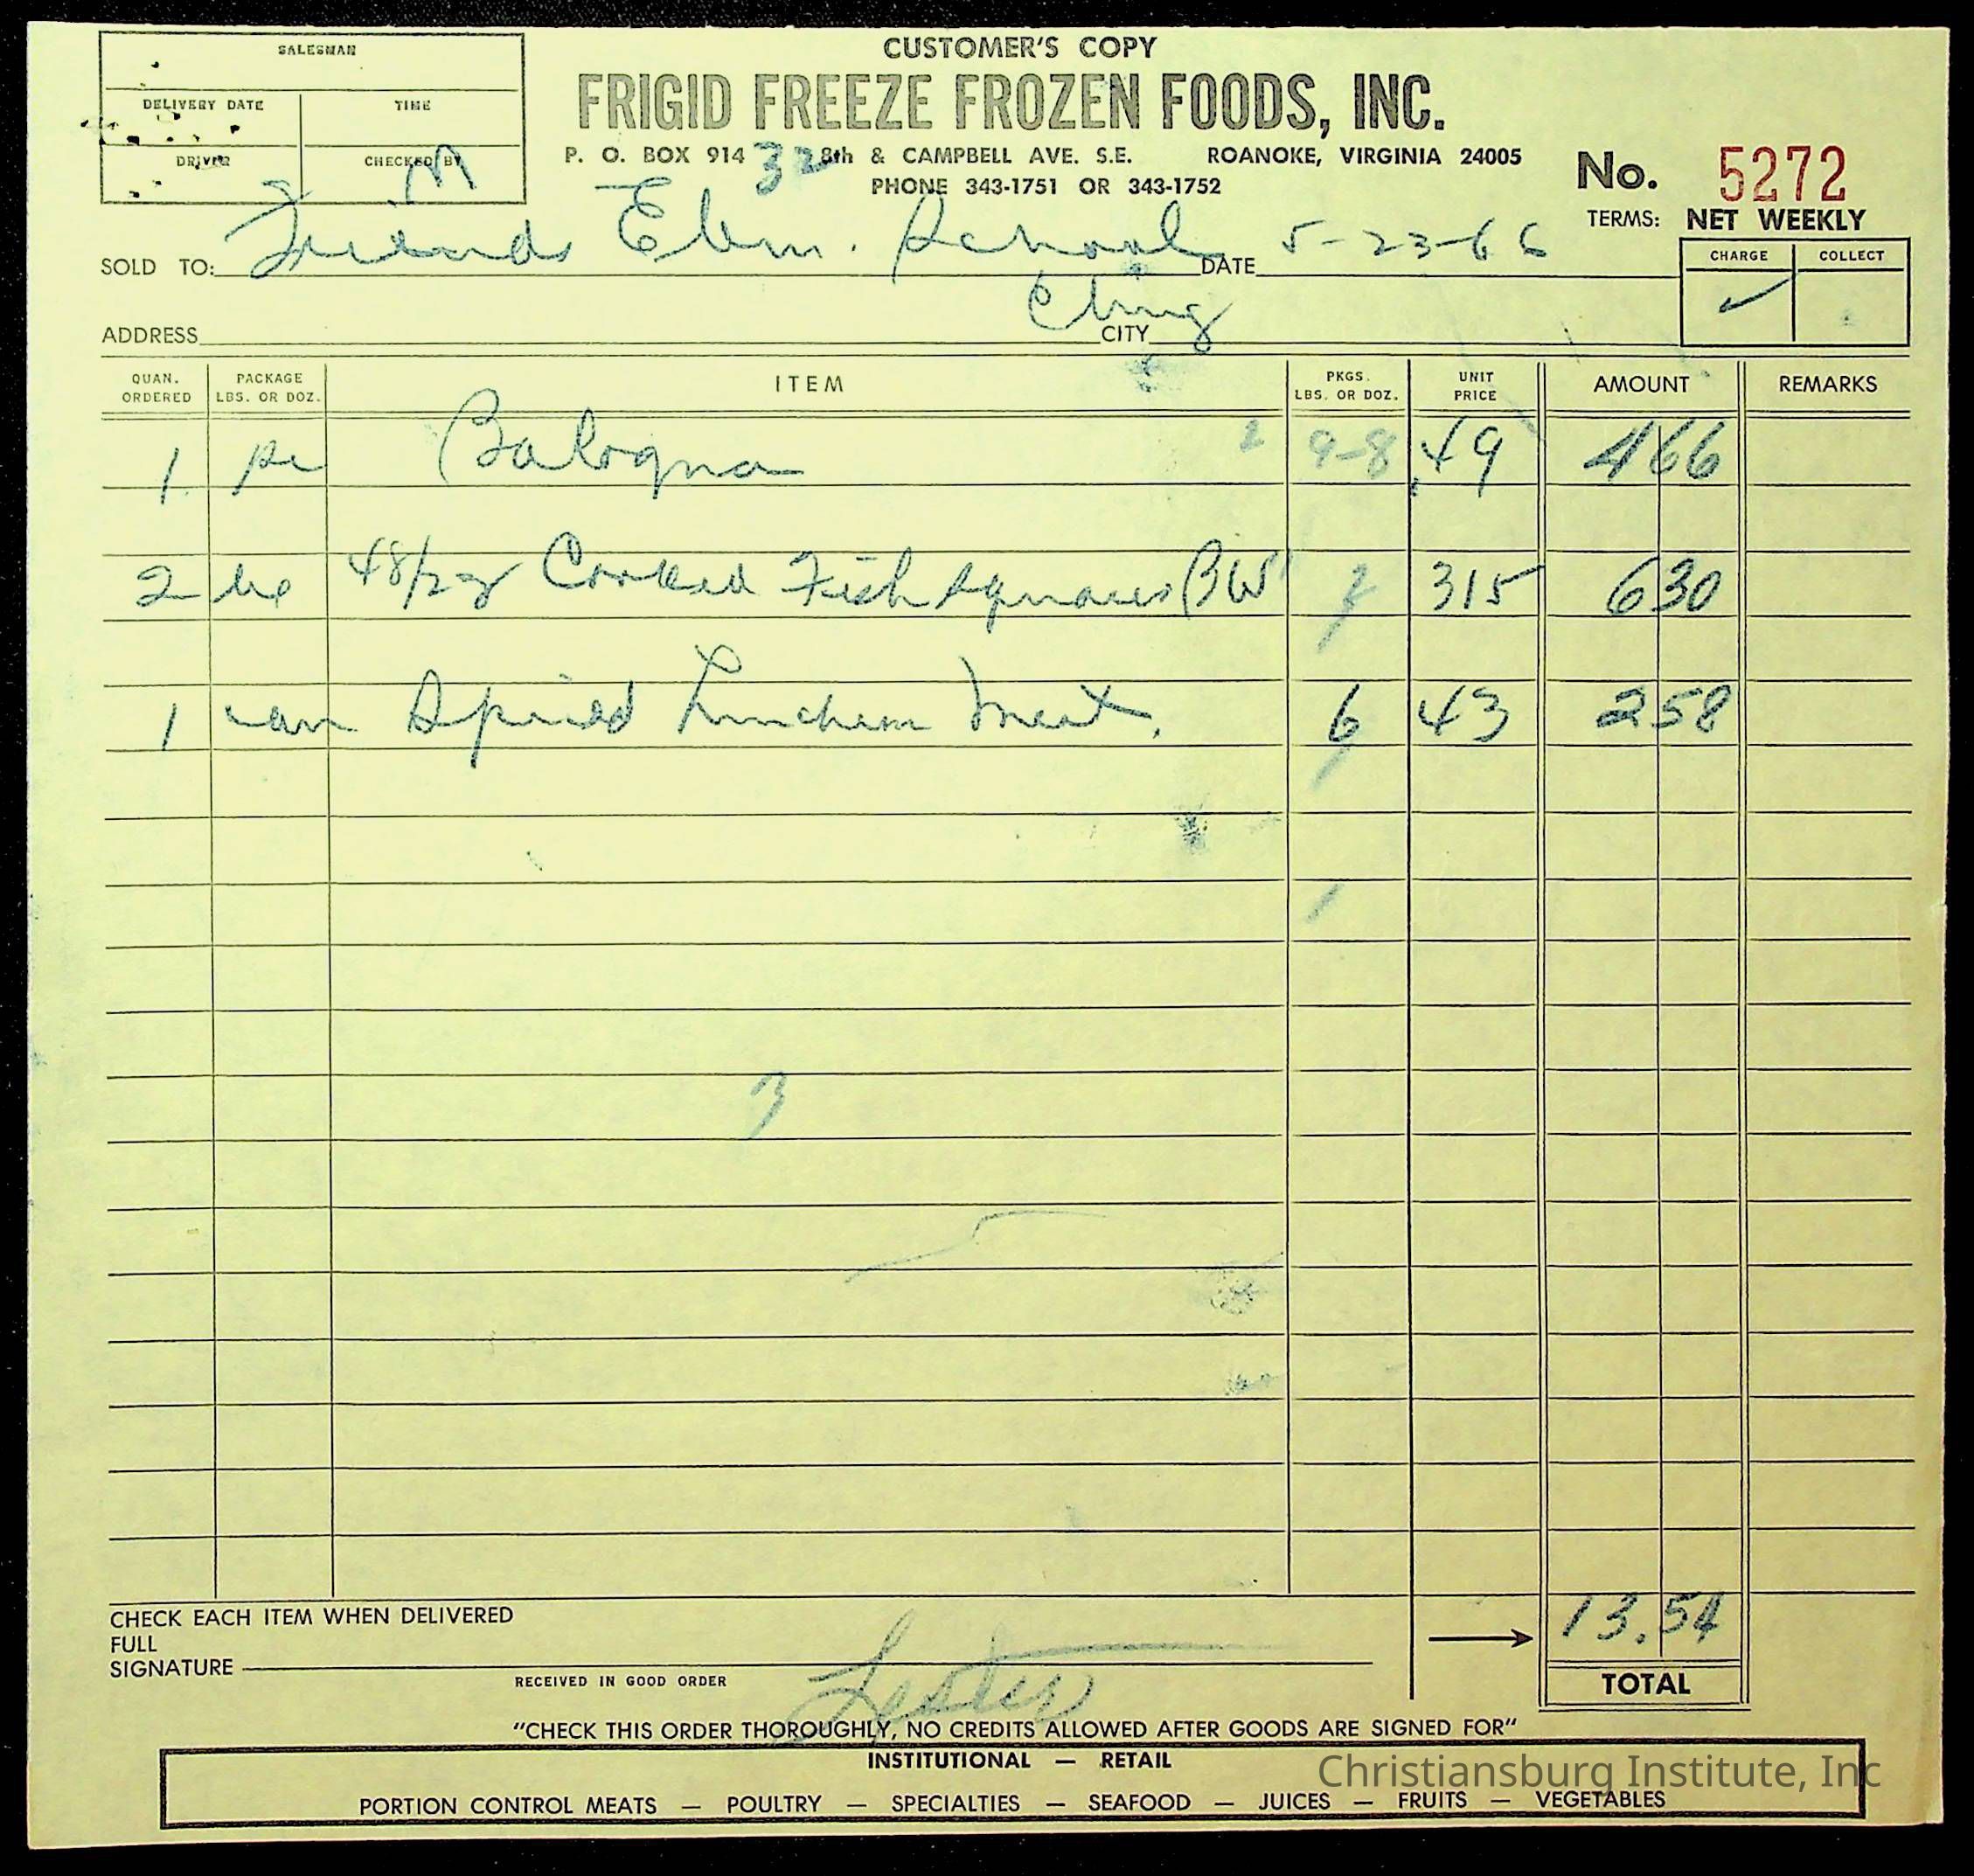 SALESMAN
DELIVERY DATE TIME
DRIVER CHECKED BY
M
CUSTOMER'S COPY
FRIGID FREEZE FROZEN FOODS, INC.
P. O. BOX 914 32 8th & CAMPBELL AVE. S.E. ROANOKE, VIRGINIA 24005
PHONE 343-1751 OR 343-1752
No. 5272
TERMS: NET WEEKLY
SOLD TO: Friends Elem. School DATE 5-23-66
CHARGE COLLECT
✓
ADDRESS CITY Cbug
QUAN. ORDERED PACKAGE LBS. OR DOZ. ITEM PKGS. LBS. OR DOZ. UNIT PRICE AMOUNT REMARKS
1 pc Balogna 9-8 .49 466
2 48/2oz Cooked Fish Squares BW 2 315 630
1 can Spiced Luncheon Meat. 6 43 258
3
CHECK EACH ITEM WHEN DELIVERED
FULL
SIGNATURE
13.54
TOTAL
RECEIVED IN GOOD ORDER
Lester
"CHECK THIS ORDER THOROUGHLY, NO CREDITS ALLOWED AFTER GOODS ARE SIGNED FOR"
INSTITUTIONAL — RETAIL
Christiansburg Institute, Inc
PORTION CONTROL MEATS — POULTRY — SPECIALTIES — SEAFOOD — JUICES — FRUITS — VEGETABLES